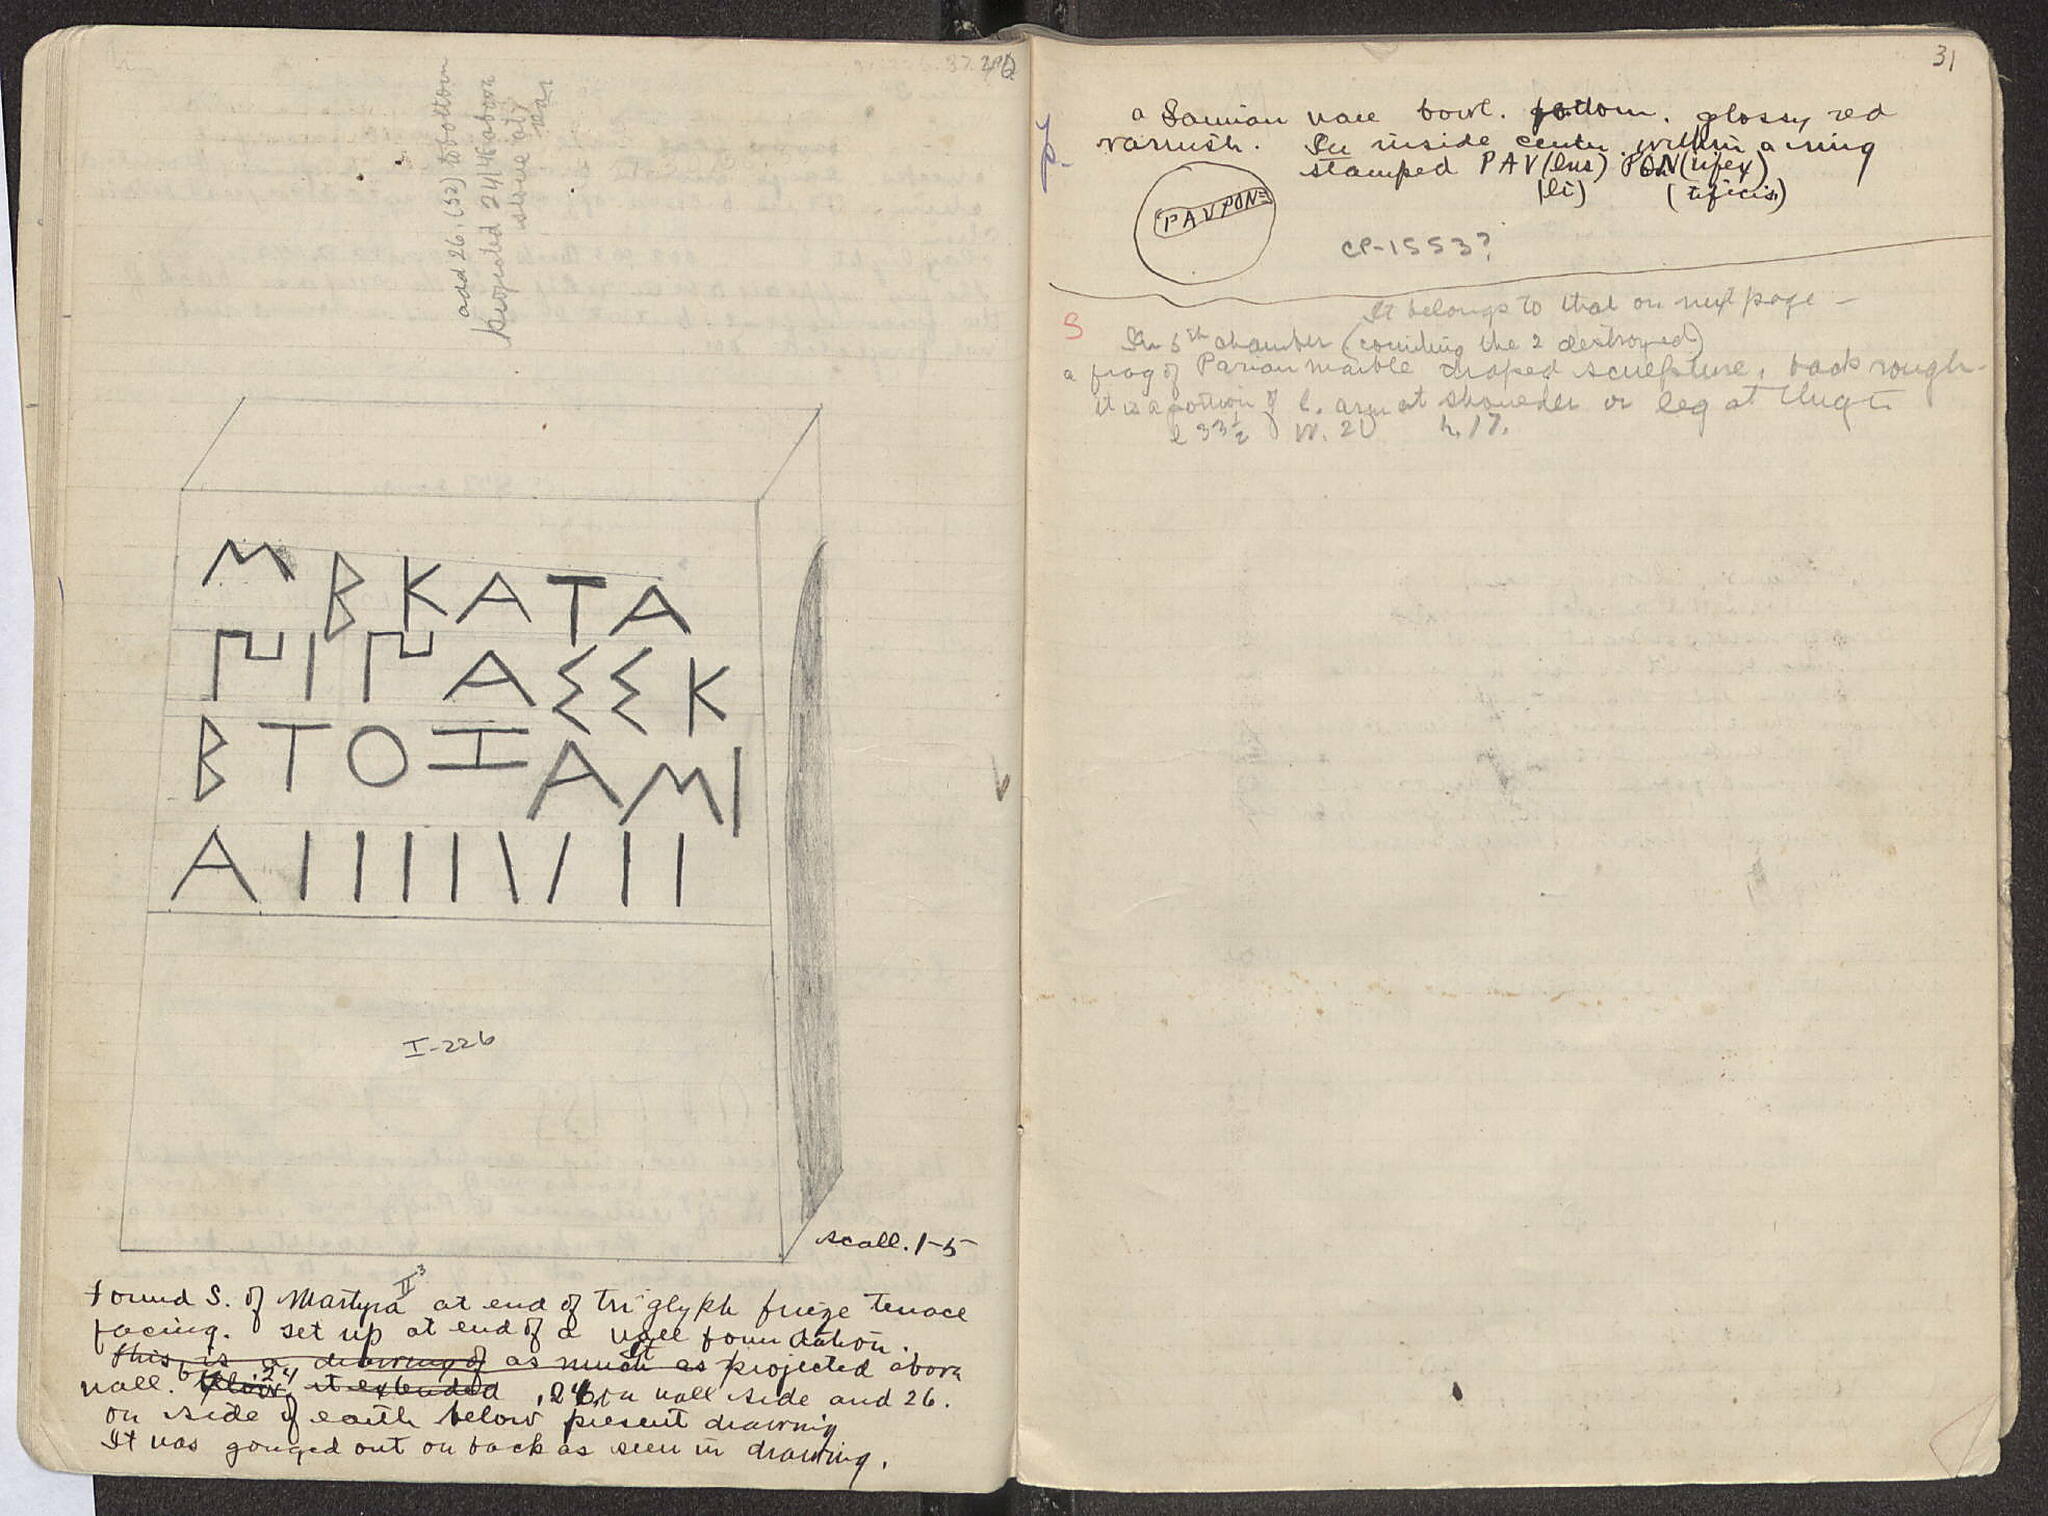 add 26. (52) to bottom
projected 24/46 above
stone at
rear
ΜΒΚΑΤΑ
ΠΙΠΑΣΣΚ
ΒΤΟΙΑΜΙ
ΑΙΙΙΙ\/ΙΙ
I-226
scall. 1-5
Found S. of Martyra II³ at end of triglyph frieze terrace
facing. set up at end of a wall foundation.
This is a drawing of as much as it projected above
wall. Below it extended .24 on wall side and 26.
on side of earth below present drawing
It was gouged out on back as seen in drawing.
31
a Samian vase bowl. bottom. glossy red
varnish. In inside center within a ring
stamped PAV(lus) PON(tifex)
(li) (tificis)
PAVPONE
CP-1553?
It belongs to that on next page —
S
In 5th chamber (counting the 2 destroyed)
a frag of Parian marble draped sculpture, back rough.
it is a portion of l. arm at shoulder or leg at thigh
l 33½ W. 20 h. 17.